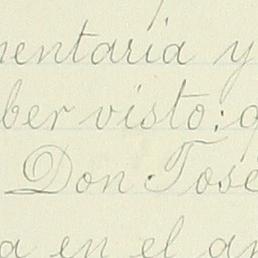 mentaria y
ber visto: q
Don José
a en el an